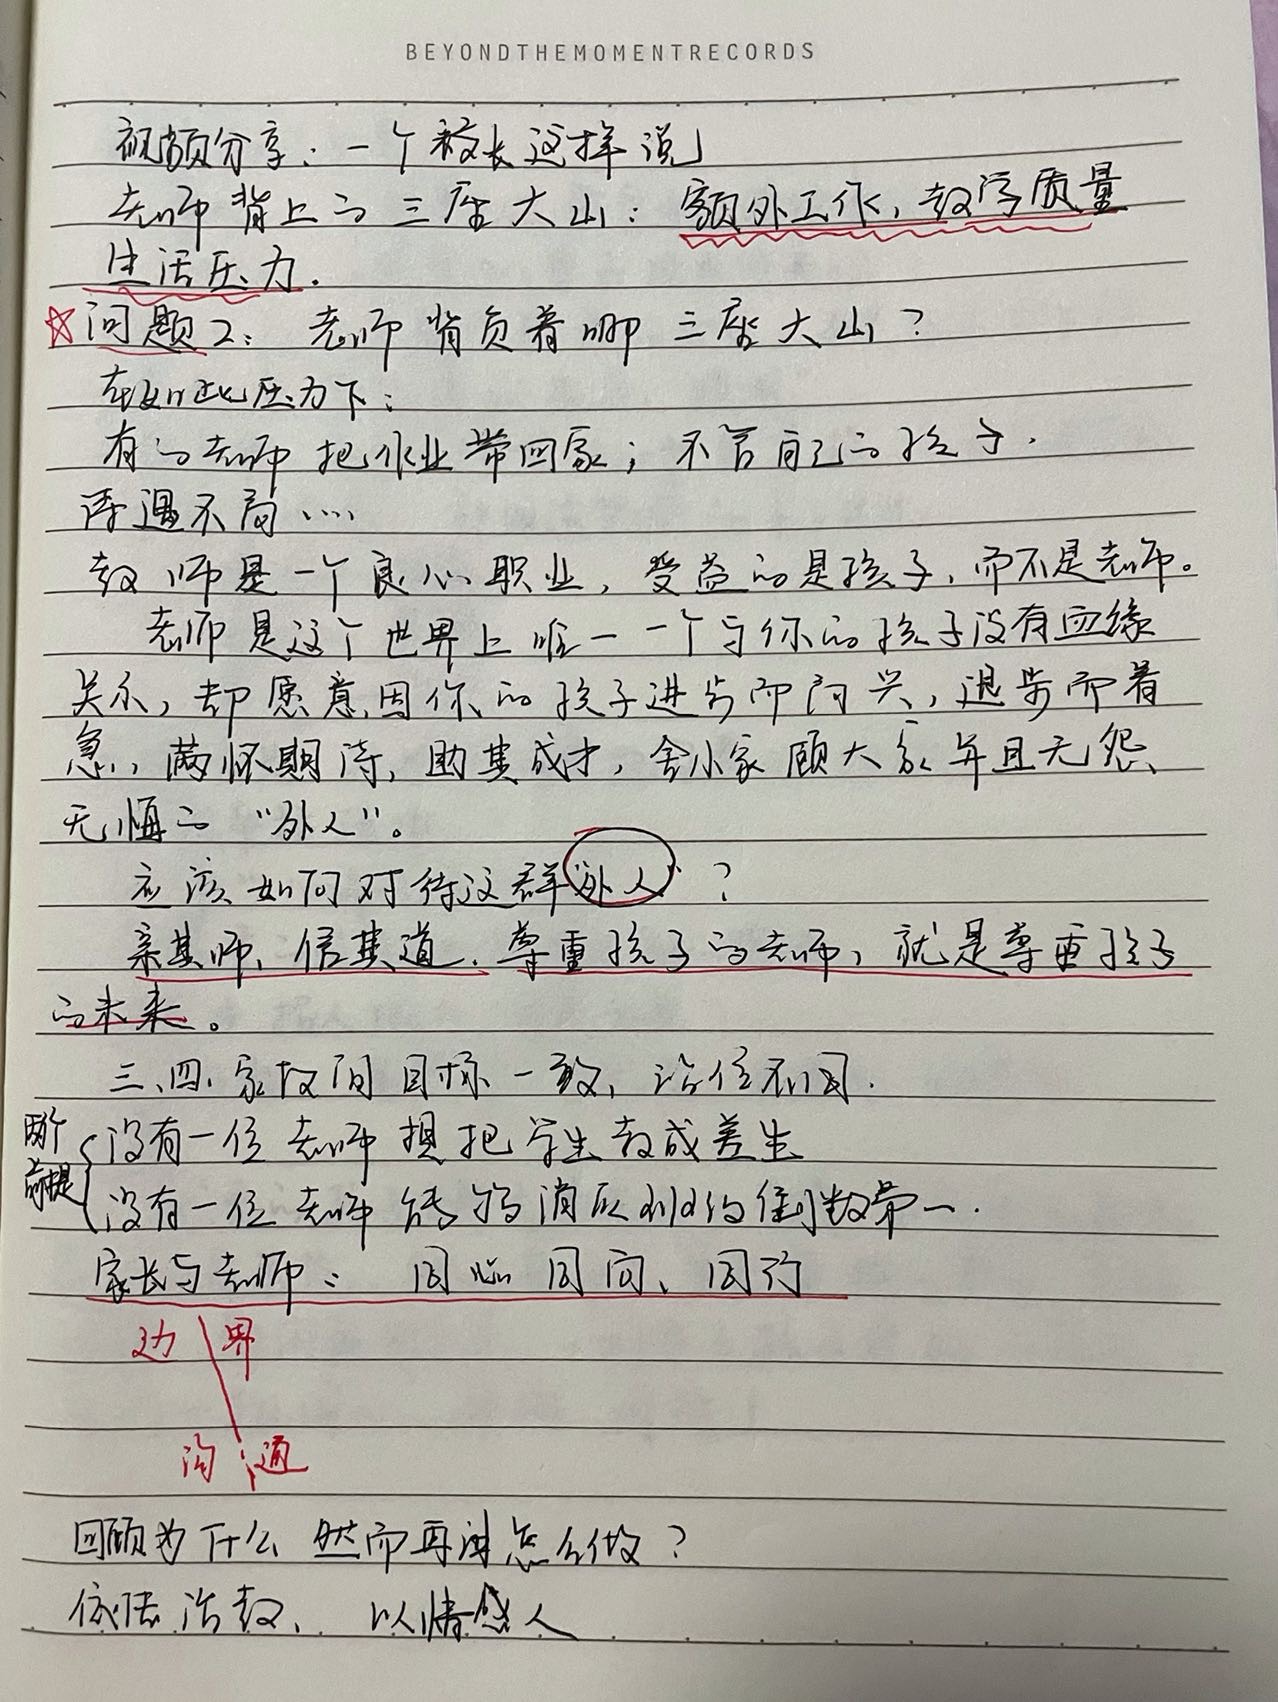 BEYONDTHEMOMENTRECORDS
视频分享：一个校长这样说
老师背上的三座大山：额外工作，教学质量
生活压力.
☆问题2：老师背负着哪三座大山？
在如此压力下：
有的老师把作业带回家；不管自己的孩子.
待遇不高……
教师是一个良心职业，受益的是孩子，而不是老师。
老师是这个世界上唯一一个与你的孩子没有血缘
关系，却愿意因你的孩子进步而高兴，退步而着
急，满怀期待，助其成才，舍小家顾大家并且无怨、
无悔的“外人”。
应该如何对待这群“外人”？
亲其师、信其道．尊重孩子的老师，就是尊重孩子
的未来。
三、四、家校间目标一致，站位不同.
两个前提
没有一位老师想把学生教成差生
没有一位老师能够消灭班级倒数第一.
家长与老师：同心同向、同行
边界
沟通
回顾为什么 然而再谈怎么做？
依法治教、以情感人